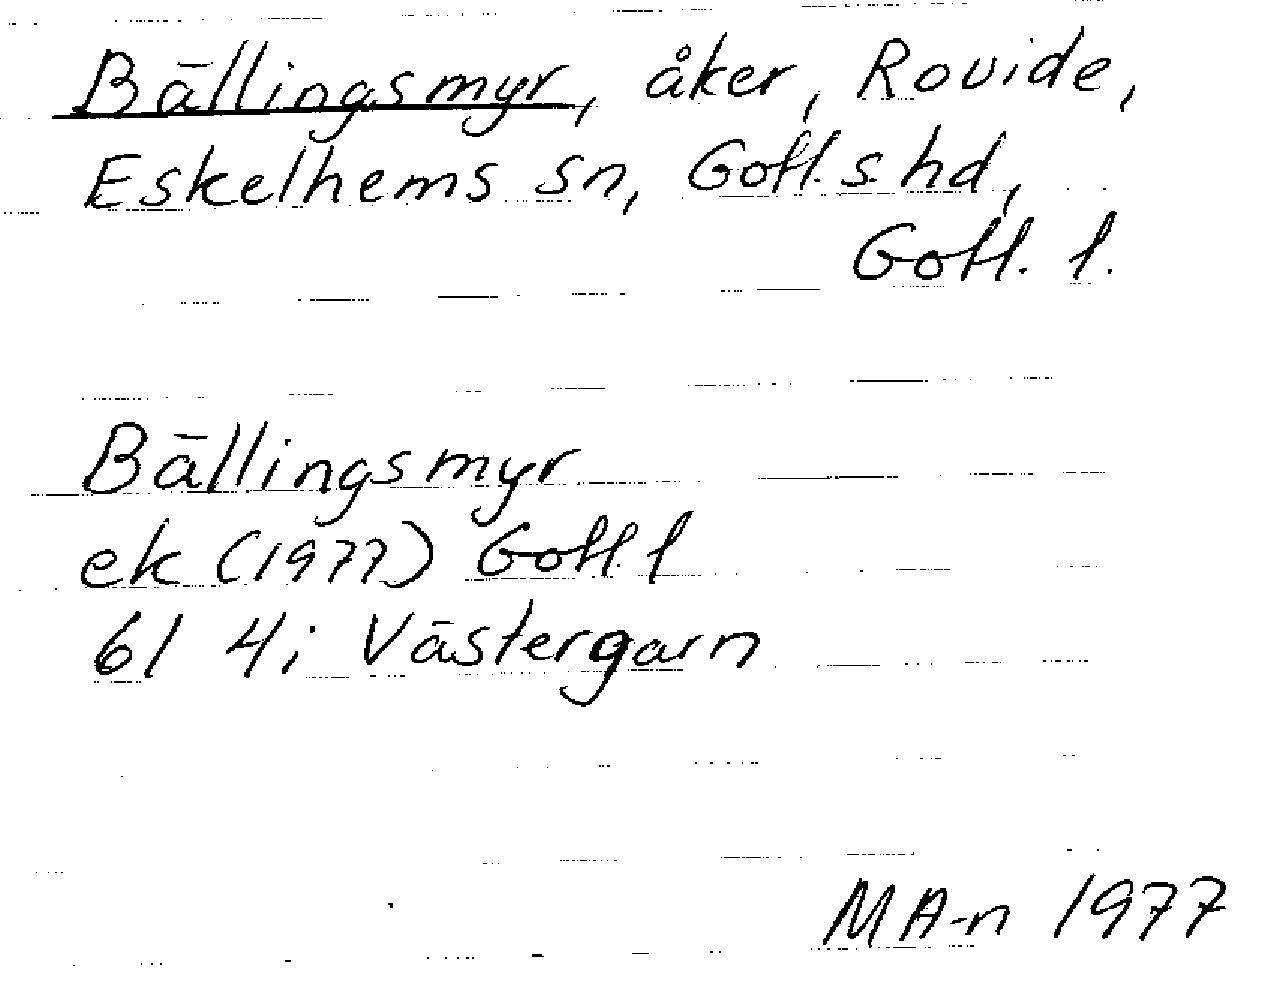 Bällingsmyr, åker, Rovide,
Eskelhems sn, Gotl. s. hd,
Gotl. l.
Bällingsmyr
ek (1977) Gotl. l
6I 4i Västergarn
MA-n 1977